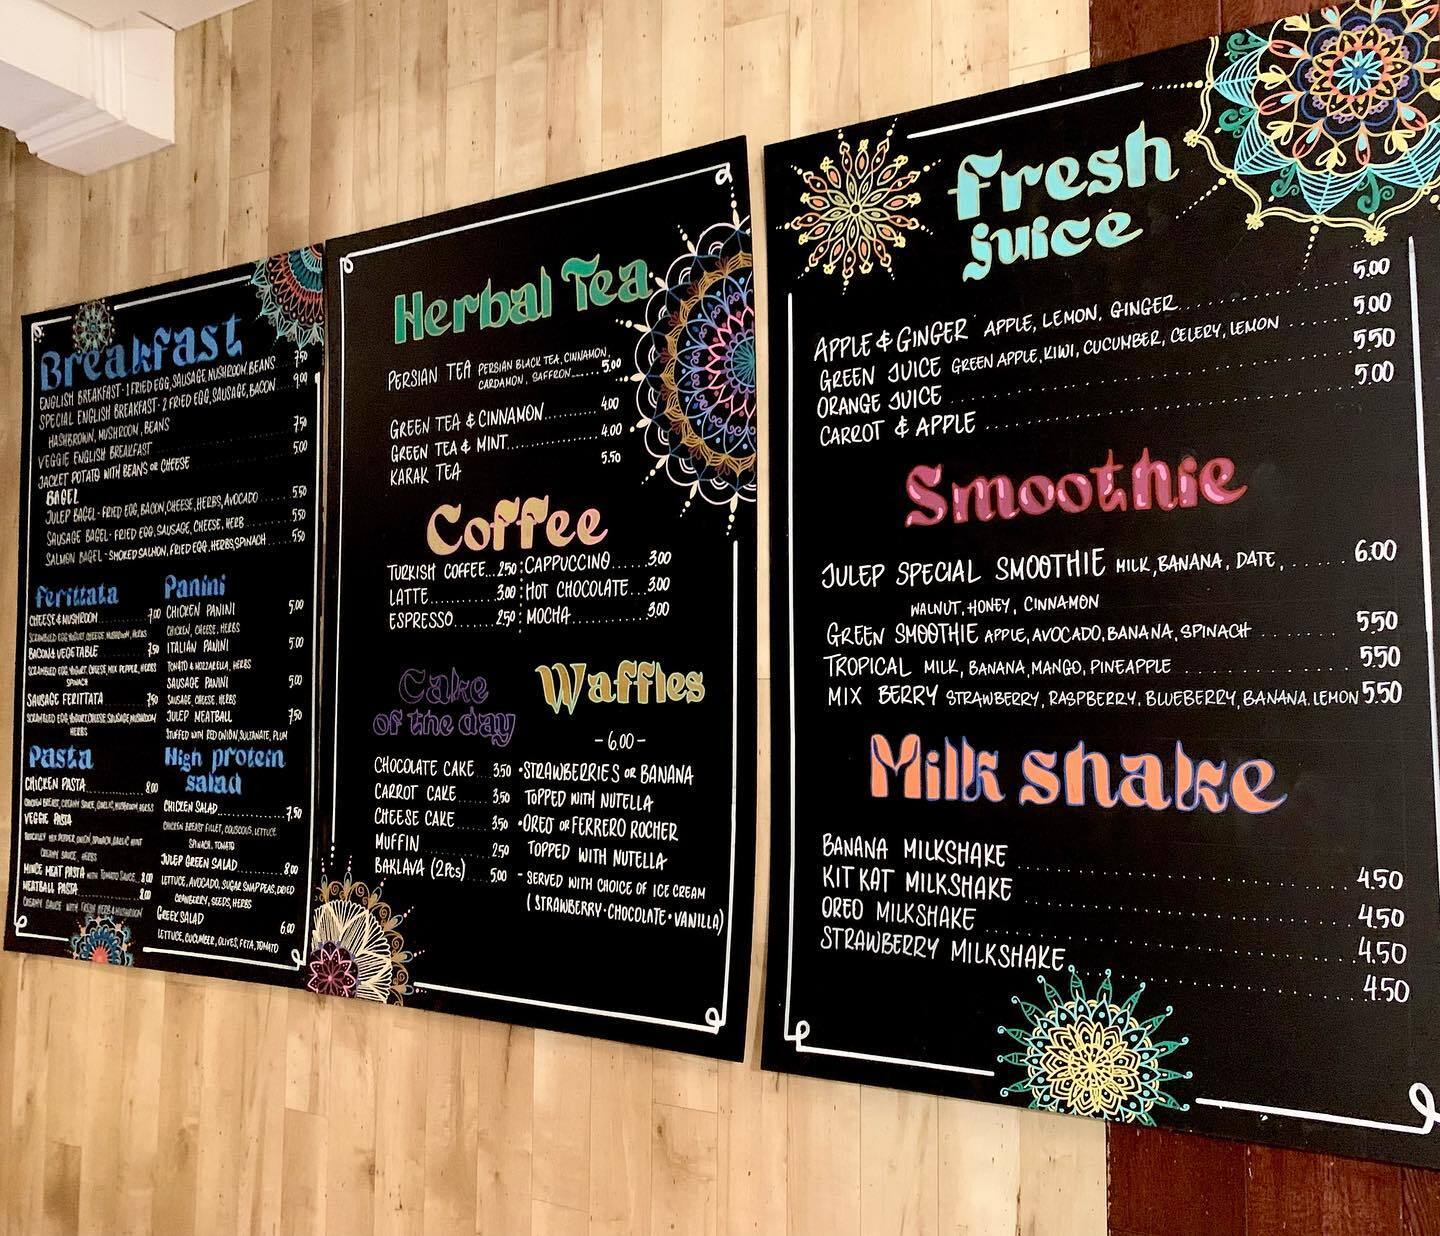 Breakfast
ENGLISH BREAKFAST - 1 FRIED EGG, SAUSAGE, MUSHROOM, BEANS 7.50
SPECIAL ENGLISH BREAKFAST - 2 FRIED EGG, SAUSAGE, BACON 9.00
HASHBROWN, MUSHROOM, BEANS
VEGGIE ENGLISH BREAKFAST 7.50
JACKET POTATO WITH BEANS OR CHEESE 5.00
BAGEL
JULEP BAGEL - FRIED EGG, BACON, CHEESE, HERBS, AVOCADO 5.50
SAUSAGE BAGEL - FRIED EGG, SAUSAGE, CHEESE, HERB 5.50
SALMON BAGEL - SMOKED SALMON, FRIED EGG, HERBS, SPINACH 5.50
Ferittata
CHEESE & MUSHROOM 7.00
SCRAMBLED EGG, YOGURT, CHEESE, MUSHROOM, HERBS
BACON & VEGETABLE 7.50
SCRAMBLED EGG, YOGURT, CHEESE, MIX PEPPER, HERBS
SPINACH
SAUSAGE FERITTATA 7.50
SCRAMBLED EGG, YOGURT, CHEESE, SAUSAGE, MUSHROOM
HERBS
Panini
CHICKEN PANINI 5.00
CHICKEN, CHEESE, HERBS
ITALIAN PANINI 5.00
TOMATO & MOZZARELLA, HERBS
SAUSAGE PANINI 5.00
SAUSAGE, CHEESE, HERBS
JULEP MEATBALL 7.50
STUFFED WITH RED ONION, SULTANATE, PLUM
Pasta
CHICKEN PASTA 8.00
CHICKEN BREAST, CREAMY SAUCE, GARLIC, MUSHROOM, HERBS
VEGGIE PASTA
MIX PEPPER, ONION, SPINACH, GARLIC MINT
CREAMY SAUCE, HERBS
MINCE MEAT PASTA WITH TOMATO SAUCE 8.00
MEATBALL PASTA 8.00
CREAMY SAUCE WITH FRESH HERB & MUSHROOM
High protein
salad
CHICKEN SALAD 7.50
CHICKEN BREAST FILLET, COUSCOUS, LETTUCE
SPINACH, TOMATO
JULEP GREEN SALAD 8.00
LETTUCE, AVOCADO, SUGAR SNAP PEAS, DRIED
CRANBERRY, SEEDS, HERBS
GREEK SALAD 6.00
LETTUCE, CUCUMBER, OLIVES, FETA, TOMATO
Herbal Tea
PERSIAN TEA PERSIAN BLACK TEA, CINNAMON,
CARDAMON, SAFFRON 5.00
GREEN TEA & CINNAMON 4.00
GREEN TEA & MINT 4.00
KARAK TEA 5.50
Coffee
TURKISH COFFEE 2.50 CAPPUCCINO 3.00
LATTE 3.00 HOT CHOCOLATE 3.00
ESPRESSO 2.50 MOCHA 3.00
Cake
of the day
CHOCOLATE CAKE 3.50
CARROT CAKE 3.50
CHEESE CAKE 3.50
MUFFIN 2.50
BAKLAVA (2Pcs) 5.00
Waffles
- 6.00 -
• STRAWBERRIES OR BANANA
TOPPED WITH NUTELLA
• OREO OR FERRERO ROCHER
TOPPED WITH NUTELLA
- SERVED WITH CHOICE OF ICE CREAM
( STRAWBERRY • CHOCOLATE • VANILLA)
Fresh
juice
APPLE & GINGER APPLE, LEMON, GINGER 5.00
GREEN JUICE GREEN APPLE, KIWI, CUCUMBER, CELERY, LEMON 5.00
ORANGE JUICE 5.50
CARROT & APPLE 5.00
Smoothie
JULEP SPECIAL SMOOTHIE MILK, BANANA, DATE, 6.00
WALNUT, HONEY, CINNAMON
GREEN SMOOTHIE APPLE, AVOCADO, BANANA, SPINACH 5.50
TROPICAL MILK, BANANA, MANGO, PINEAPPLE 5.50
MIX BERRY STRAWBERRY, RASPBERRY, BLUEBERRY, BANANA, LEMON 5.50
Milk shake
BANANA MILKSHAKE 4.50
KIT KAT MILKSHAKE 4.50
OREO MILKSHAKE 4.50
STRAWBERRY MILKSHAKE 4.50